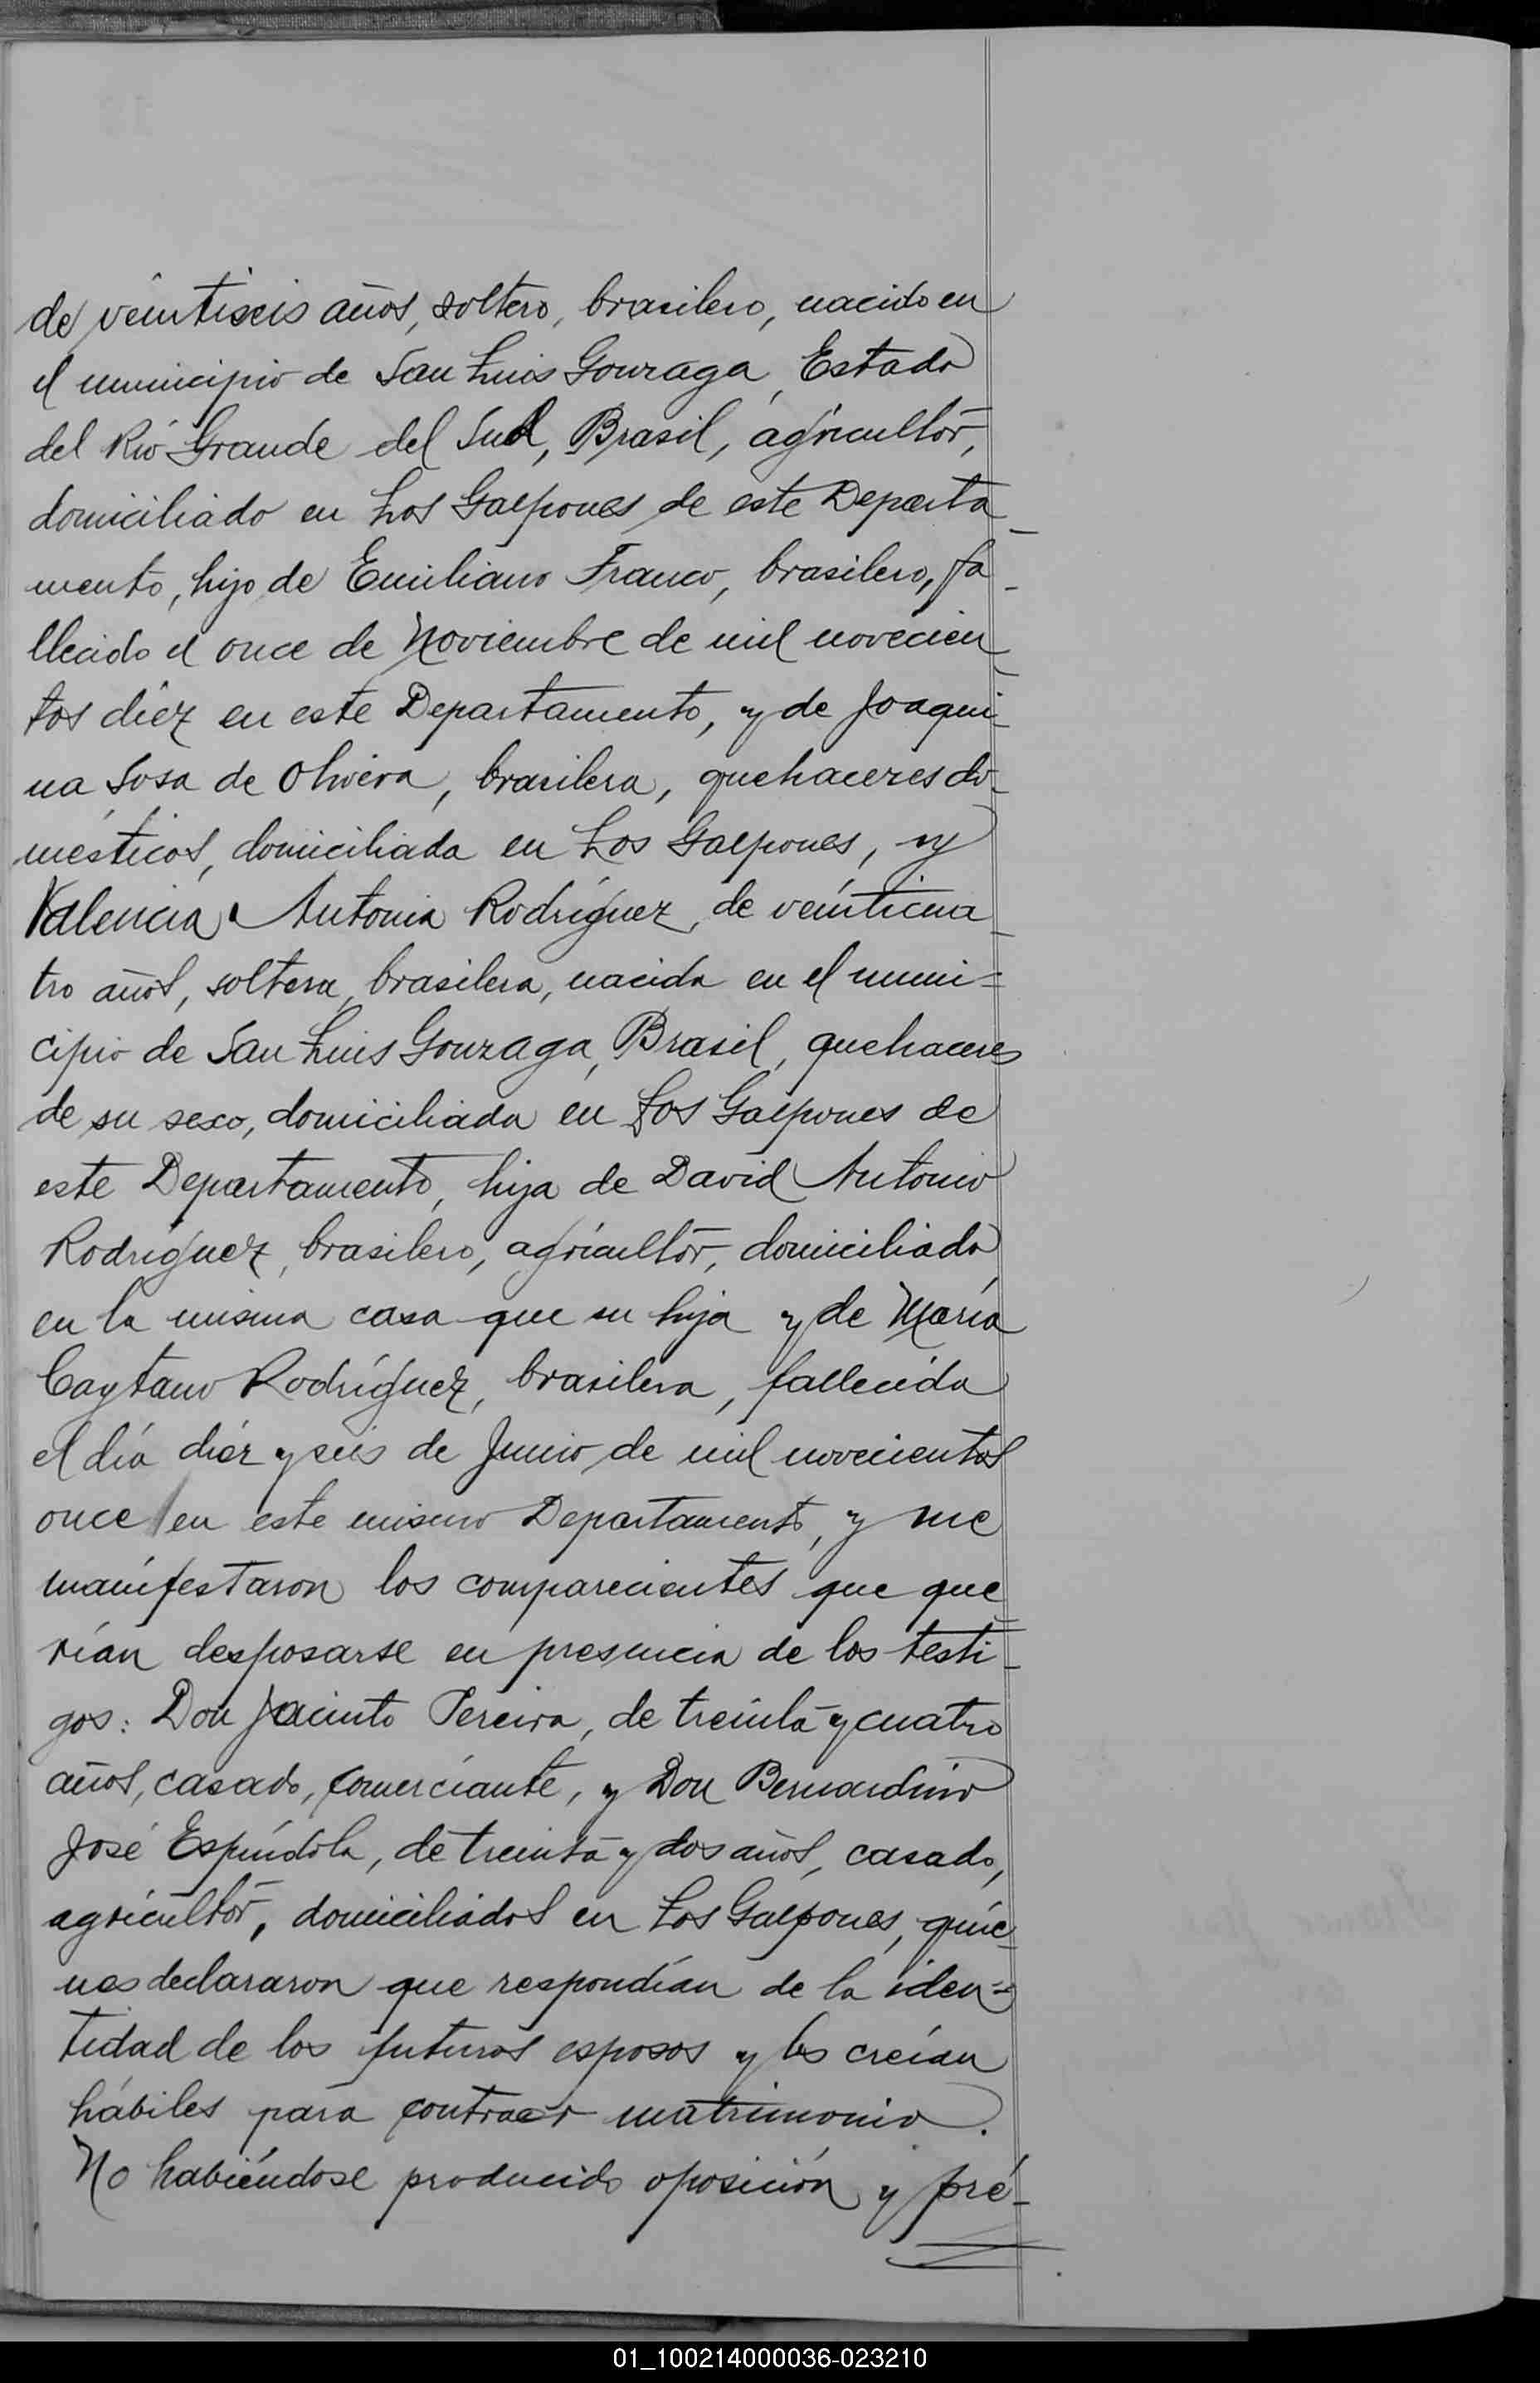 de veintiseis años, soltero, brasilero, nacido en
el municipio de San Luis Gonzaga, Estado
del Río Grande del Sud, Brasil, agricultor,
domiciliado en Los Galpones de este Departa-
mento, hijo de Emiliano Franco, brasilero, fa-
llecido el once de Noviembre de mil novecien-
tos diez en este Departamento, y de Joaqui-
na Sosa de Olivera, brasilera, quehaceres do-
mésticos, domiciliada en Los Galpones, y
Valencia Antonia Rodríguez, de veinticua-
tro años, soltera, brasilera, nacida en el muni=
cipio de San Luis Gonzaga, Brasil, quehaceres
de su sexo, domiciliada en Los Galpones de
este Departamento, hija de David Antonio
Rodríguez, brasilero, agricultor, domiciliado
en la misma casa que su hija y de María
Caytano Rodríguez, brasilera, fallecida
el día diez y seis de Junio de mil novecientos
once en este mismo Departamento, y me
manifestaron los comparecientes que que-
rían desposarse en presencia de los testi-
gos: Don Jacinto Pereira, de treinta y cuatro
años, casado, comerciante, y Don Bernardino
José Espíndola, de treinta y dos años, casado,
agricultor, domiciliados en Los Galpones, quie-
nes declararon que respondían de la iden=
tidad de los futuros esposos y los creían
hábiles para contraer matrimonio.
No habiéndose producido oposición y pré-
01_100214000036-023210